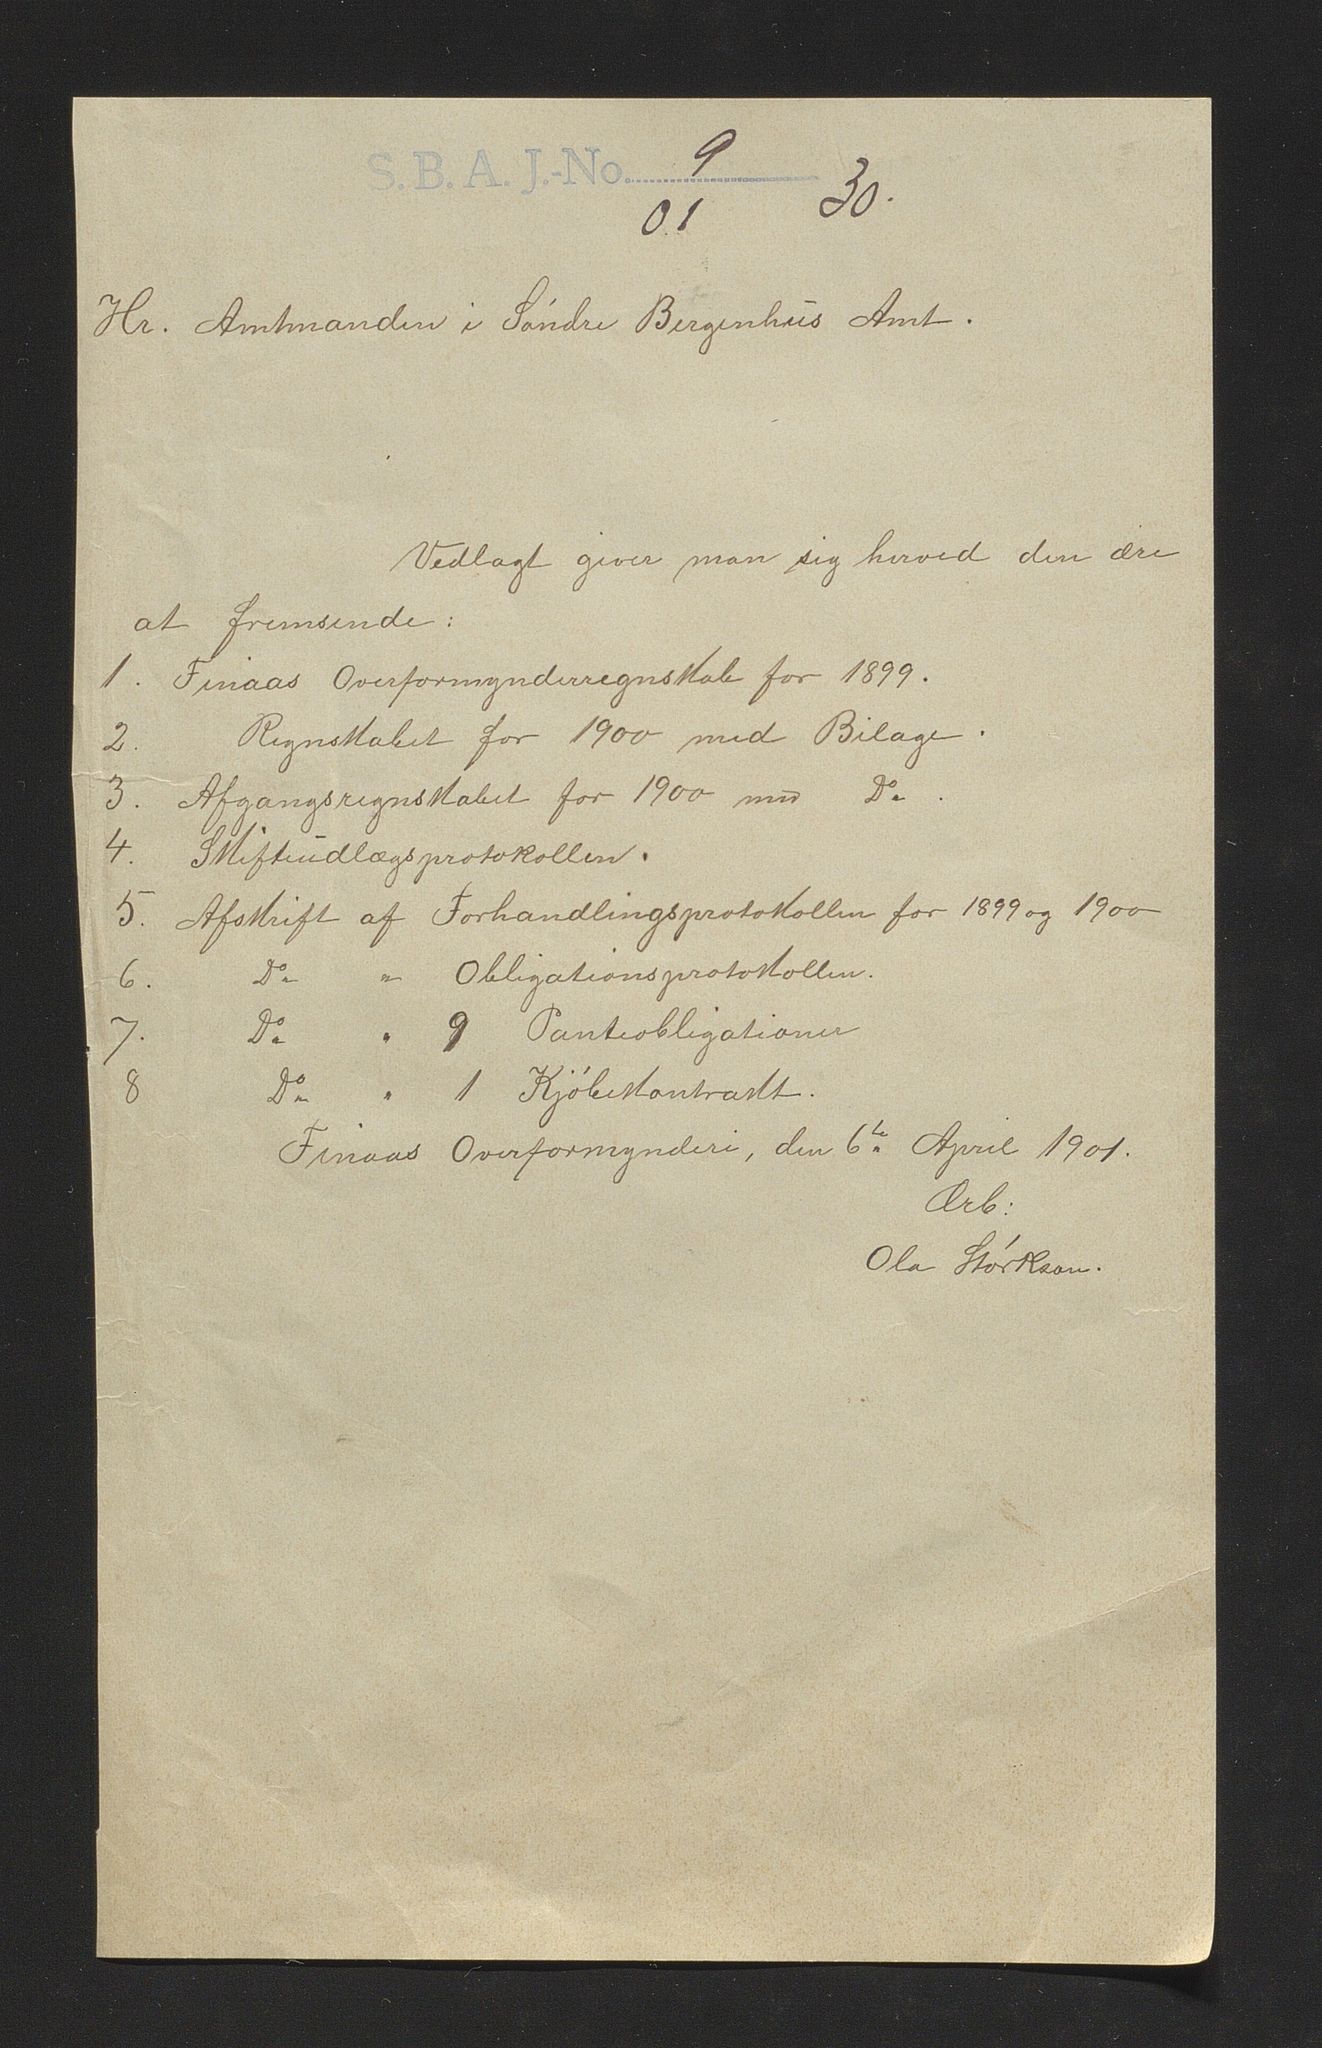 S. B. A. J.-No. 9
01 30.
Hr. Amtmanden i Söndre Bergenhus Amt.
Vedlagt giver man sig herved den ære
at fremsende:
1. Finaas Overformynderregnskab for 1899.
2. Regnskabet for 1900 med Bilage.
3. Afgangsregnskabet for 1900 med Do.
4. Skifteudlægsprotokollen.
5. Afskrift af Forhandlingsprotokollen for 1899 og 1900
6. Do " Obligationsprotokollen.
7. Do " 9 Panteobligationer
8 Do " 1 Kjöbekontrakt.
Finaas Overformynderi, den 6te April 1901.
Ærb:
Ola Störkson.